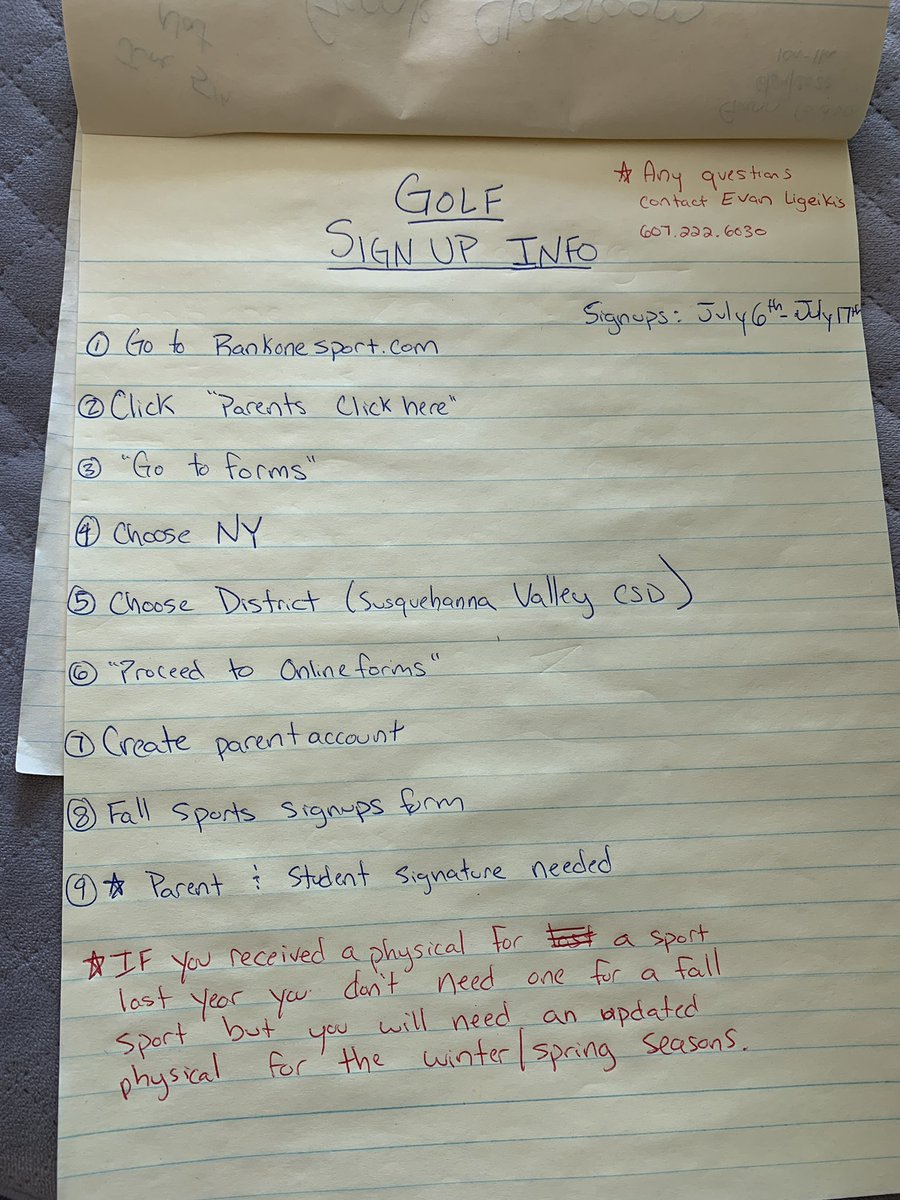 GOLF
SIGN UP INFO
☆ Any questions
contact Evan Ligeikis
607.222.6030
Signups: July 6th - July 17th
① Go to Rankonesport.com
② Click "Parents Click here"
③ "Go to forms"
④ Choose NY
⑤ Choose District (Susquehanna Valley CSD)
⑥ "Proceed to Online forms"
⑦ Create parent account
⑧ Fall Sports signups form
⑨ ☆ Parent & Student signature needed
☆ IF you received a physical for a sport
last year you don't need one for a fall
sport but you will need an updated
physical for the winter/spring seasons.